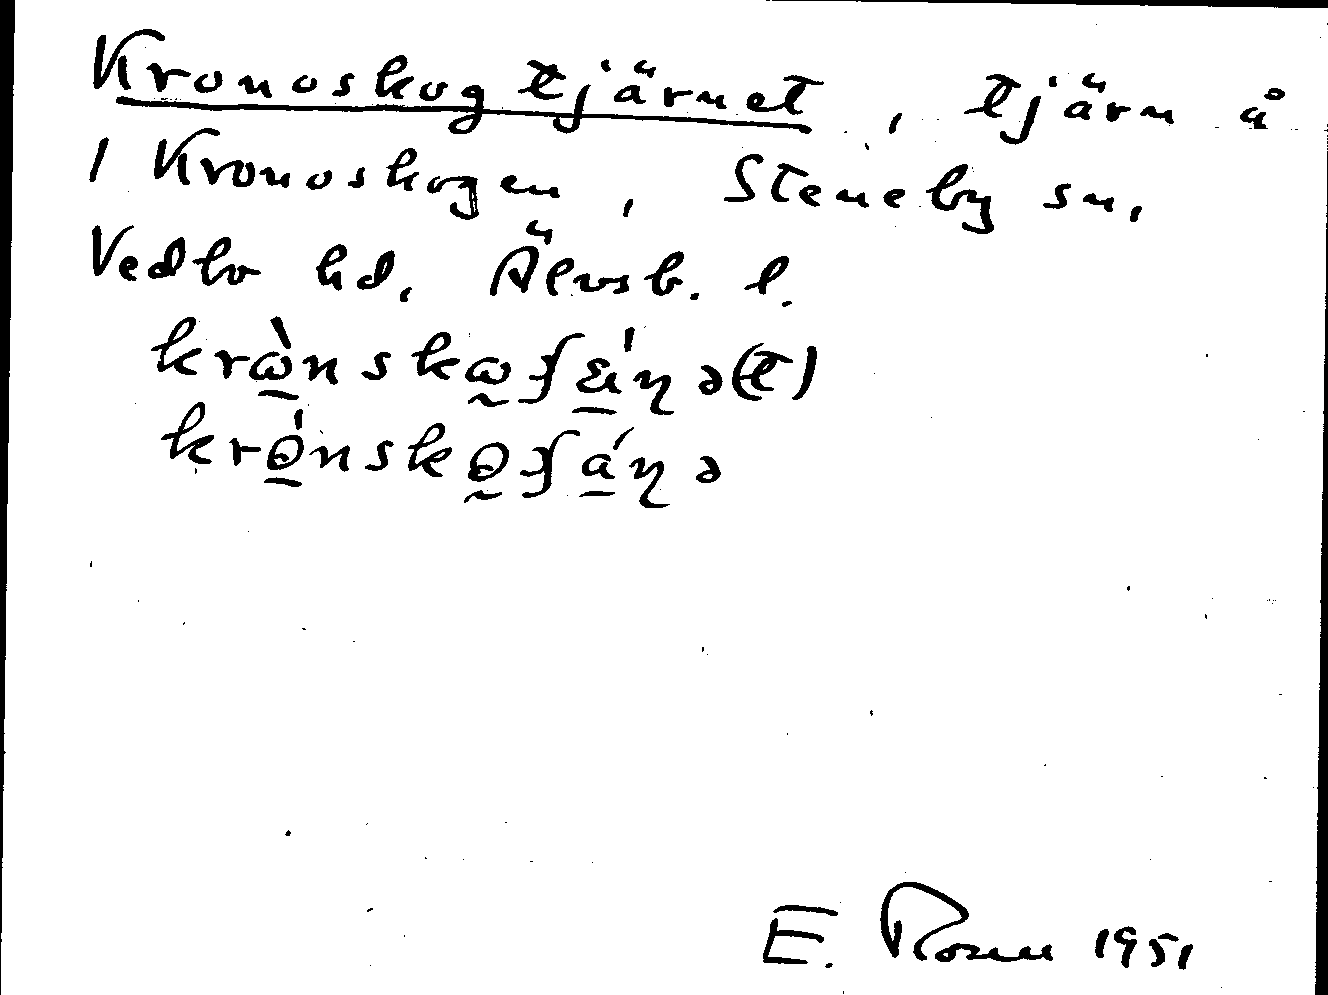 Kronoskogtjärnet, tjärn å
1 Kronoskogen, Steneby sn,
Vedbo hd, Älvsb. l.
krɷ̀nskɷʃɛ́ɳə(t)
krɵ́nskɵʃáɳə
E. Rosun 1951